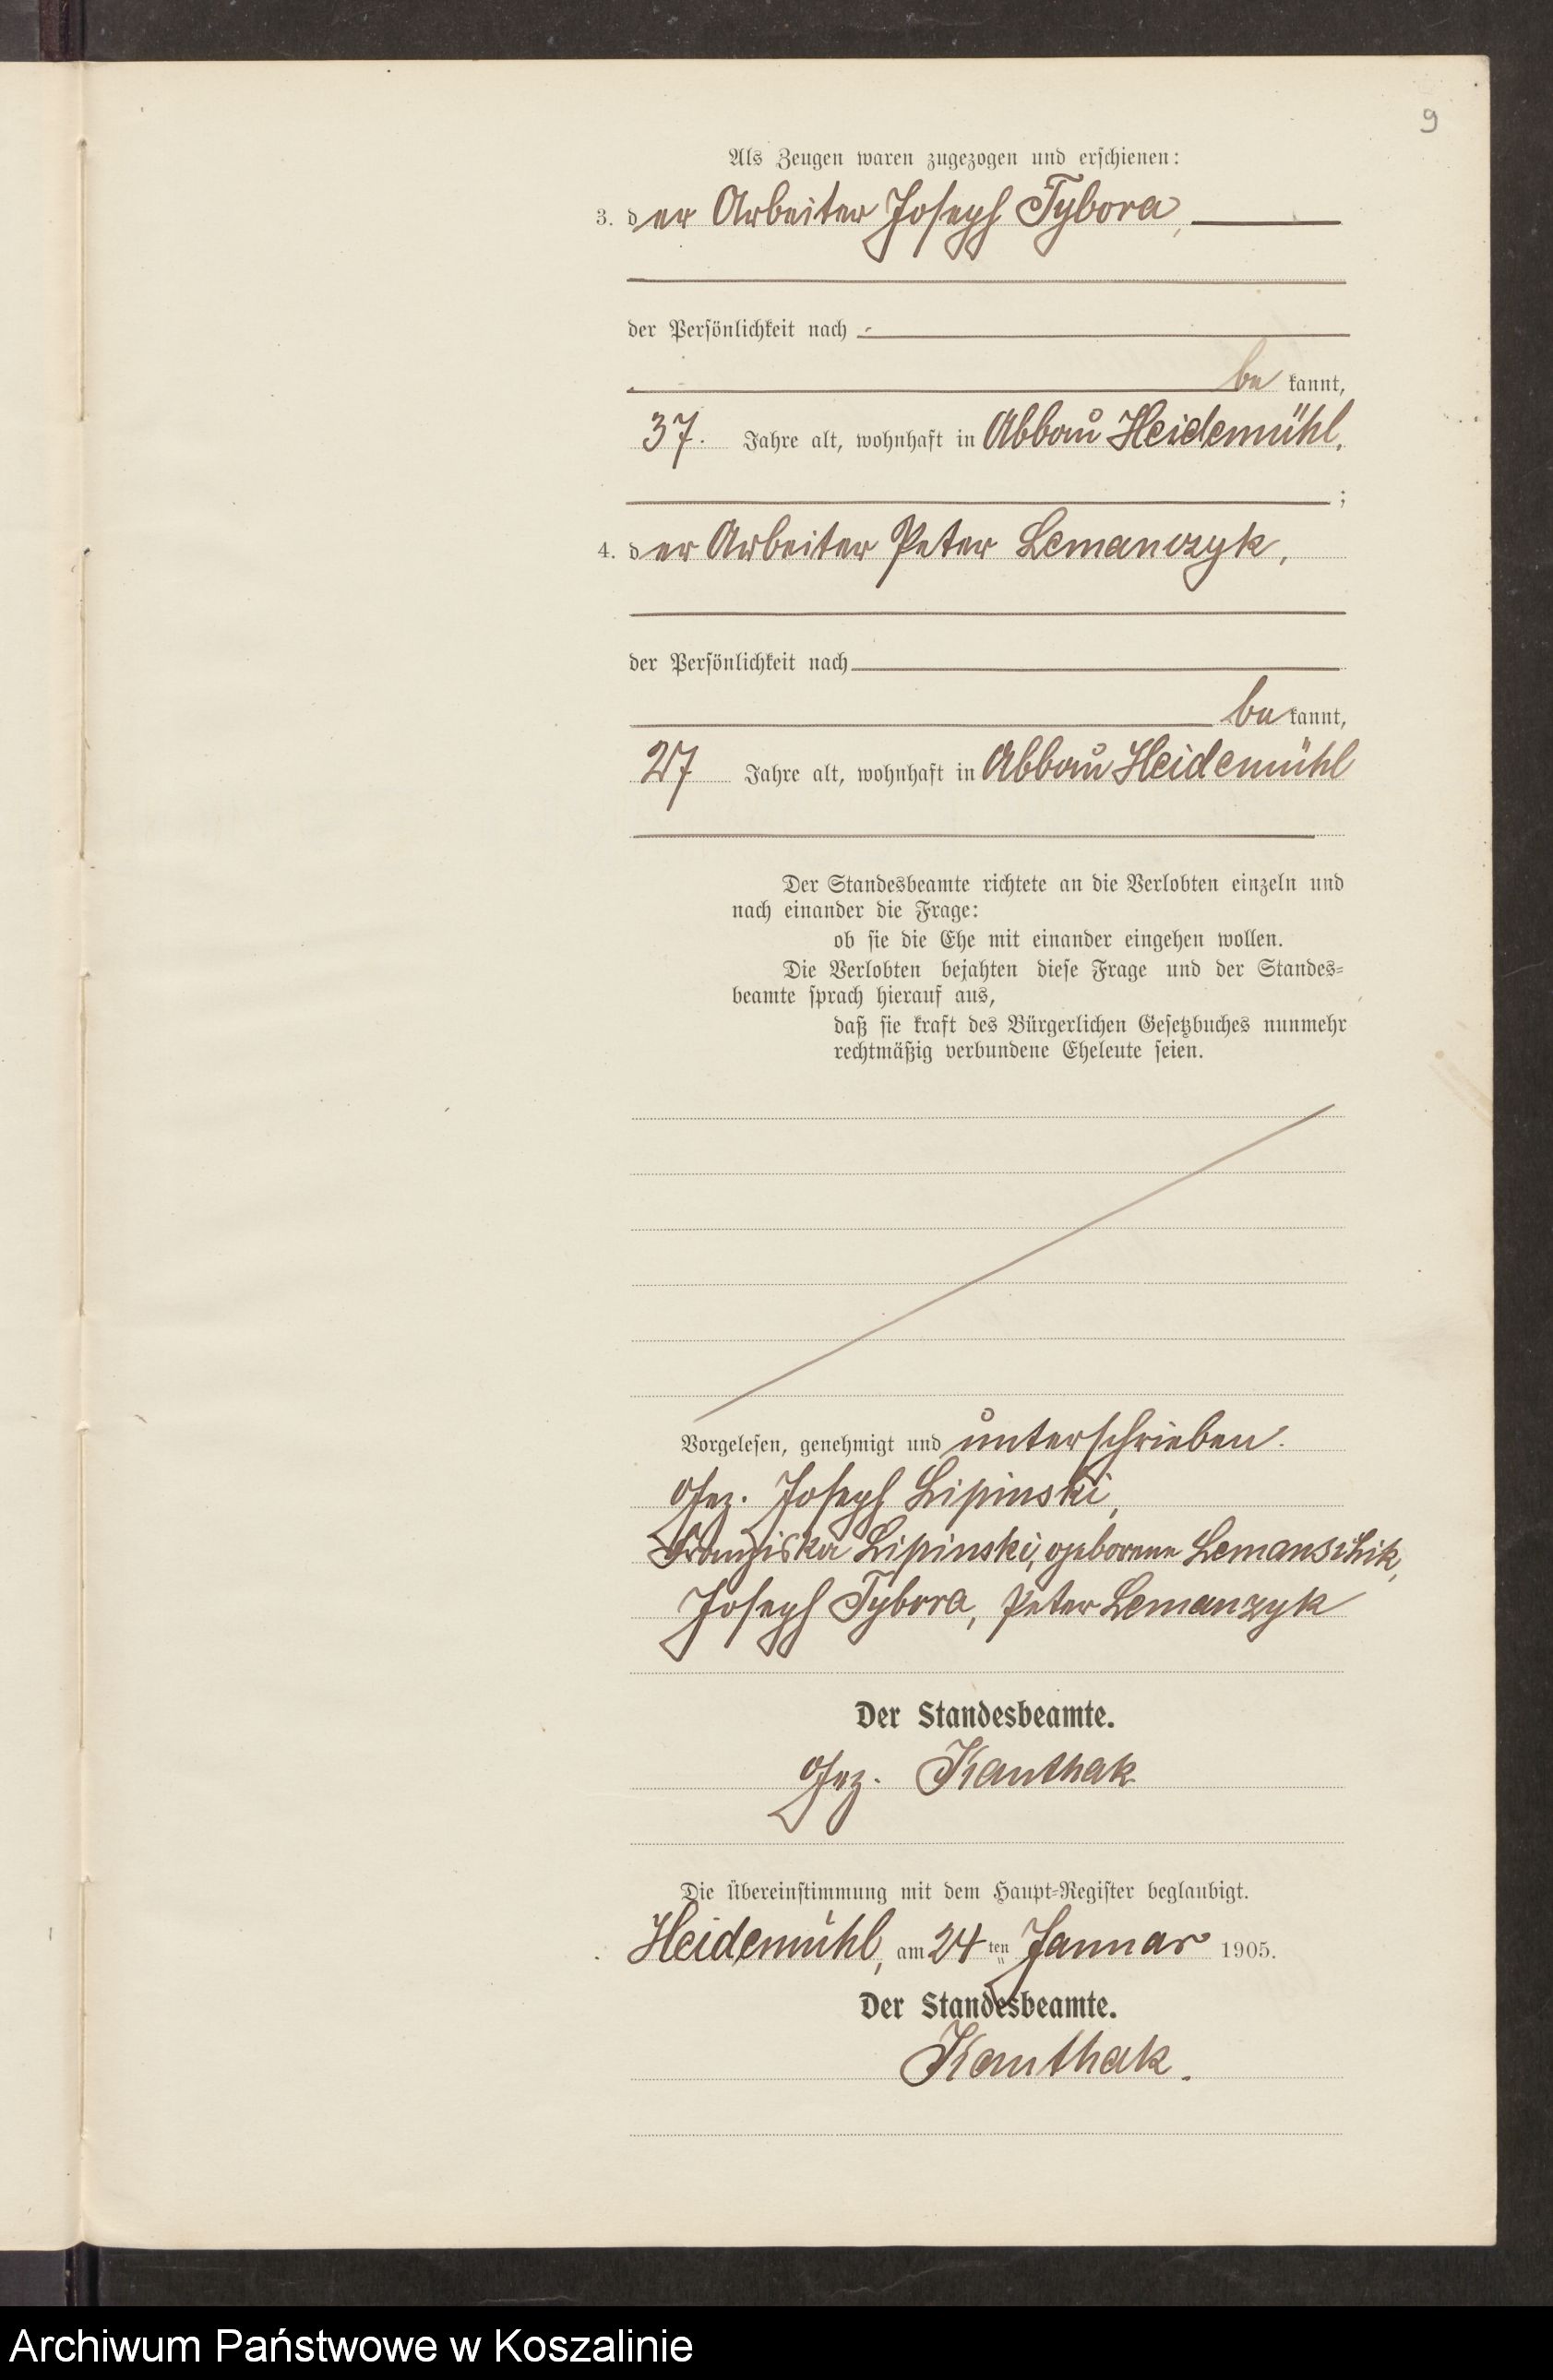 9
Als Zeugen waren zugezogen und erschienen:
3. der Arbeiter Joseph Tybora,
der Persönlichkeit nach
be kannt,
37. Jahre alt, wohnhaft in Abbau Heidemühl,
;
4. der Arbeiter Peter Lemanczyk,
der Persönlichkeit nach
be kannt,
27 Jahre alt, wohnhaft in Abbau Heidemühl
Der Standesbeamte richtete an die Verlobten einzeln und
nach einander die Frage:
ob sie die Ehe mit einander eingehen wollen.
Die Verlobten bejahten diese Frage und der Standes-
beamte sprach hierauf aus,
daß sie kraft des Bürgerlichen Gesetzbuches nunmehr
rechtmäßig verbundene Eheleute seien.
Vorgelesen, genehmigt und unterschrieben.
Gez. Joseph Lipinski,
Franziska Lipinski, geborene Lemanschik,
Joseph Tybora, Peter Lemanzyk
Der Standesbeamte.
Gez. Kanthak
Die Übereinstimmung mit dem Haupt-Register beglaubigt.
Heidemühl, am 24 ten Januar 1905.
Der Standesbeamte.
Kanthak.
Archiwum Państwowe w Koszalinie